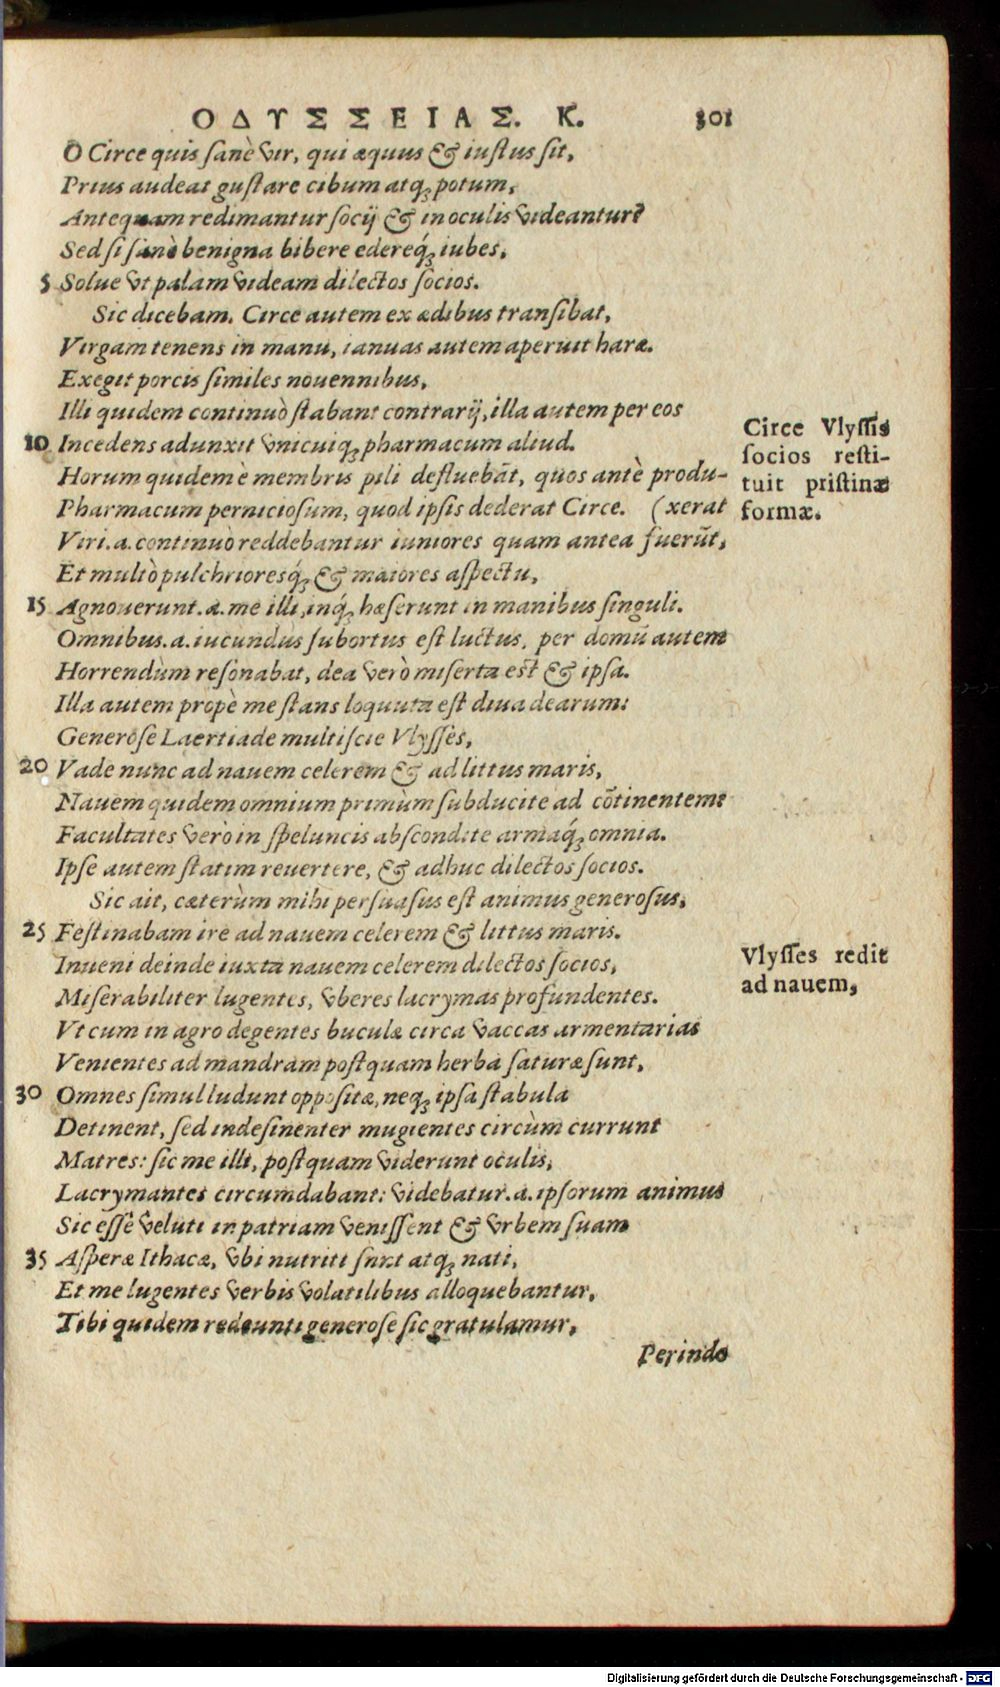 ΟΔΥΣΣΕΙΑΣ. Κ. 301
O Circe quis sanè vir, qui æquus & iustus sit,
Prius audeat gustare cibum atq; potum,
Antequam redimantur socij & in oculis videantur?
Sed si sanè benigna bibere edereq́; iubes,
5 Solue vt palam videam dilectos socios.
Sic dicebam. Circe autem ex ædibus transibat,
Virgam tenens in manu, ianuas autem aperuit haræ.
Exegit porcis similes nouennibus,
Illi quidem continuò stabant contrarij, illa autem per eos
10 Incedens adunxit vnicuiq; pharmacum aliud.
Horum quidem è membris pili defluebāt, quos antè produ-
Pharmacum perniciosum, quod ipsis dederat Circe. (xerat
Viri .a. continuò reddebantur iuniores quam antea fuerūt,
Et multò pulchrioresq́; & maiores aspectu,
15 Agnouerunt .a. me illi, inq́; hæserunt in manibus singuli.
Omnibus .a. iucundus subortus est luctus, per domū autem
Horrendùm resonabat, dea verò miserta est & ipsa.
Illa autem propè me stans loquuta est diua dearum:
Generose Laertiade multiscie Vlysses,
20 Vade nunc ad nauem celerem & ad littus maris,
Nauem quidem omnium primùm subducite ad cōtinentem:
Facultates verò in speluncis abscondite armaq́; omnia.
Ipse autem statim reuertere, & adhuc dilectos socios.
Sic ait, cæterùm mihi persuasus est animus generosus,
25 Festinabam ire ad nauem celerem & littus maris.
Inueni deinde iuxta nauem celerem dilectos socios,
Miserabiliter lugentes, vberes lacrymas profundentes.
Vt cum in agro degentes buculæ circa vaccas armentarias
Venientes ad mandram postquam herba saturæ sunt,
30 Omnes simul ludunt oppositæ, neq; ipsa stabula
Detinent, sed indesinenter mugientes circùm currunt
Matres: sic me illi, postquam viderunt oculis,
Lacrymantes circumdabant: videbatur .a. ipsorum animus
Sic esse veluti in patriam venissent & vrbem suam
35 Asperæ Ithacæ, vbi nutriti sunt atq; nati,
Et me lugentes verbis volatilibus alloquebantur,
Tibi quidem redeunti generose sic gratulamur,
Perinde
Circe Vlyssis
socios resti-
tuit pristinæ
formæ.
Vlysses redit
ad nauem,
Digitalisierung gefördert durch die Deutsche Forschungsgemeinschaft - DFG